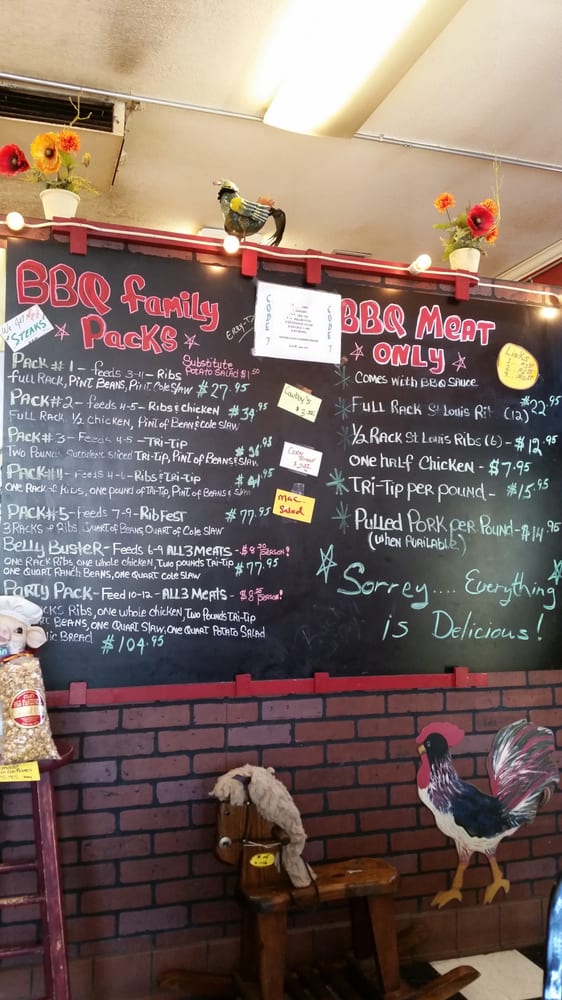 BBQ Family
Packs
We Sell
STEAKS
Substitute
Potato Salad $1.50
Pack #1 - feeds 3-4 - Ribs
full Rack, Pint Beans, Pint Cole Slaw $27.95
Pack #2 - feeds 4-5 - Ribs & Chicken $39.95
Full Rack, 1/2 Chicken, Pint of Bean & Cole Slaw
Pack #3 - Feeds 4-5 - Tri-Tip
Two Pounds Succulent Sliced Tri-Tip, Pint of Beans & Slaw
Pack #4 - Feeds 4-6 - Ribs & Tri-Tip
One Rack of Ribs, one pound of Tri-Tip, Pint of Beans & Slaw
Pack #5 - Feeds 7-9 - Rib Fest $77.95
3 Racks of Ribs, Quart of Beans, Quart of Cole Slaw
Belly Buster - Feeds 6-9 ALL 3 Meats - Person!
one Rack Ribs, one whole chicken, Two pounds Tri-Tip $77.95
one Quart Ranch Beans, one Quart Cole Slaw
Party Pack - Feed 10-12 - ALL 3 Meats - Person!
Ribs, one whole chicken, Two Pounds Tri-Tip
Beans, one Quart Slaw, one Quart Potato Salad
Bread $104.95
CODE 7
CODE 7
Corn
Mac
Salad
BBQ Meat
Only
Links
Comes with BBQ Sauce
Full Rack St Louis Rib (12) $22.95
1/2 Rack St Louis Ribs (6) - $12.95
one half Chicken - $7.95
Tri-Tip per pound - $15.95
Pulled Pork per Pound - $14.95
(when Available)
Sorrey.... Everything
is Delicious!